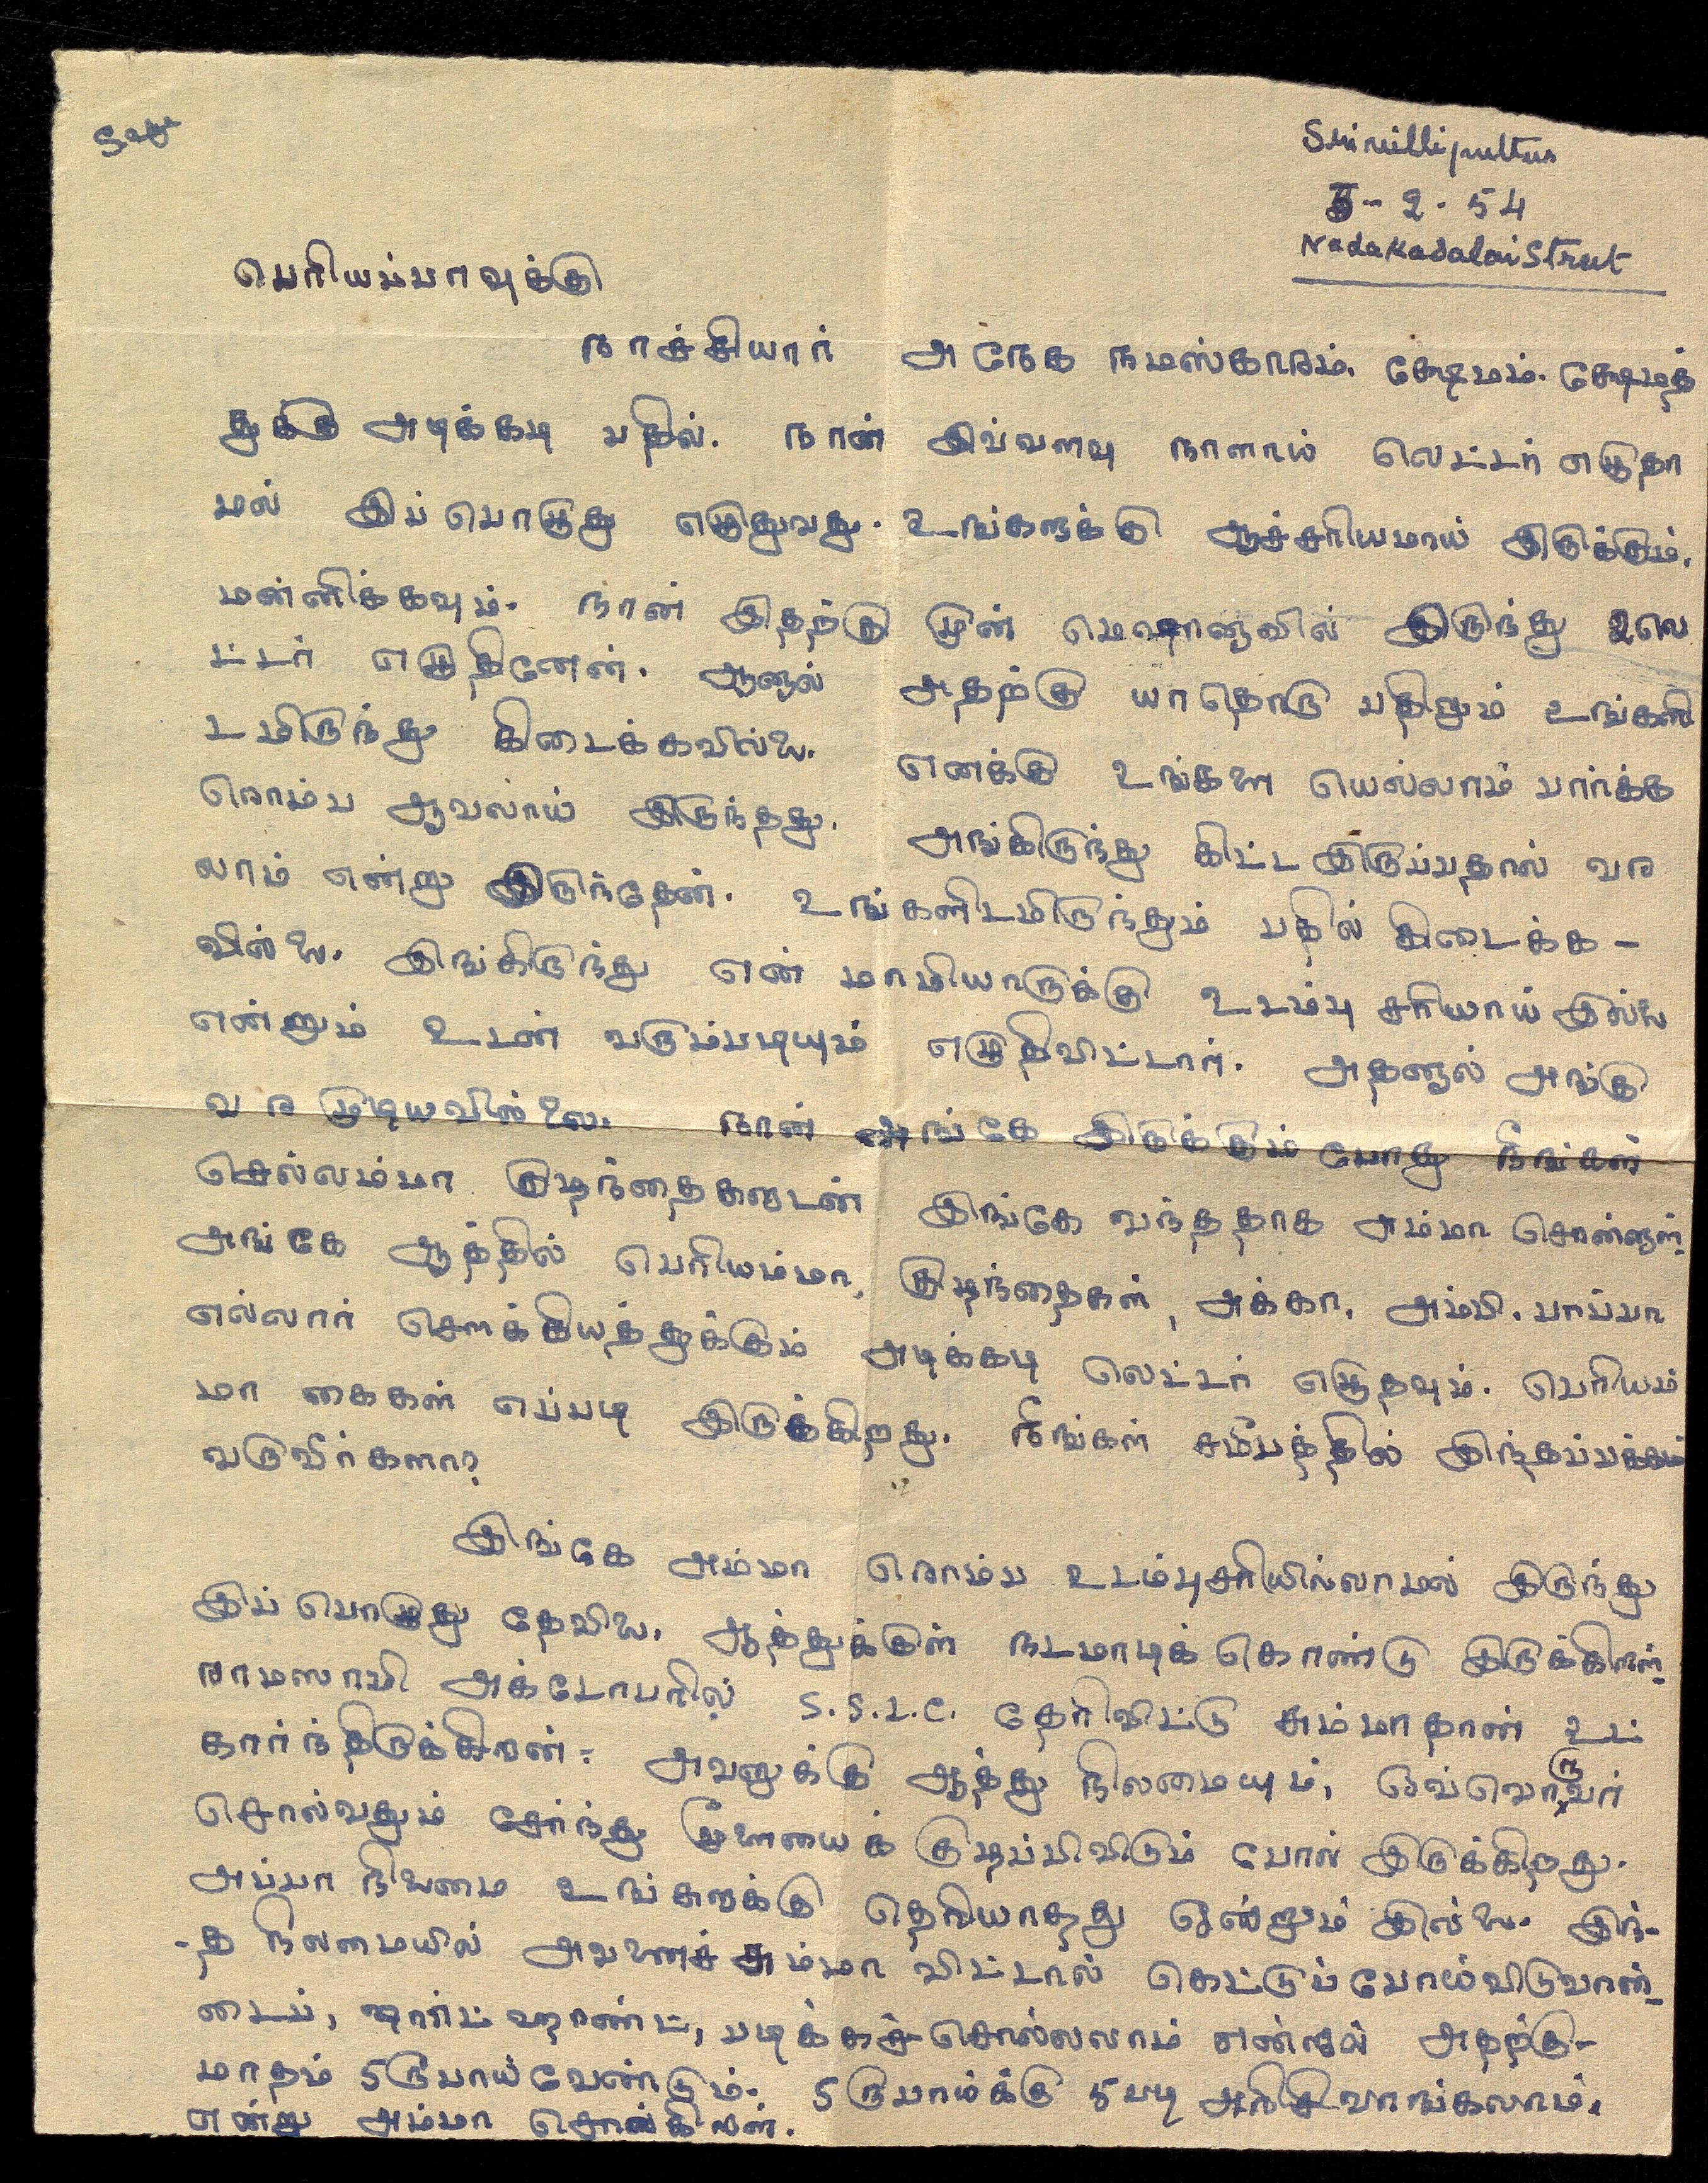 Srivilliputtur
5-2-54
Nadakadalai Street
பெரியப்பாவுக்கு
நாச்சியார் அநேக நமஸ்காரம். க்ஷேமம். க்ஷேமத்
துக்கு அடிக்கடி பதில். நான் இவ்வளவு நாளாய் லெட்டர் எழுதா
மல் இப்பொழுது எழுதுவது உங்களுக்கு ஆச்சரியமாய் இருக்கும்.
மன்னிக்கவும். நான் இதற்கு முன் இருந்து 2 லெ
ட்டர் எழுதினேன். ஆனால் அதற்கு யாதொரு பதிலும் உங்களி
டமிருந்து கிடைக்கவில்லை. எனக்கு உங்களை யெல்லாம் பார்க்க
ரொம்ப ஆவலாய் இருந்தது. அங்கிருந்து கிட்ட இருப்பதால் வர
லாம் என்று இருந்தேன். உங்களிடமிருந்தும் பதில் கிடைக்க-
வில்லை. இங்கிருந்து என் மாமியாருக்கு உடம்பு சரியாய் இல்லை
என்றும் உடன் வரும்படியும் எழுதிவிட்டார். அதனால் அங்கு
வர முடியவில்லை. நான் அங்கே இருக்கும் போது நீங்கள்
செல்லம்மா குழந்தைகளுடன் இங்கே வந்ததாக அம்மா சொன்னாள்.
அங்கே ஆத்தில் பெரியம்மா, குழந்தைகள், அக்கா, அம்பி. பாப்பா
எல்லார் சௌக்கியத்துக்கும் அடிக்கடி லெட்டர் எழுதவும். பெரியம்
மா கைகள் எப்படி இருக்கிறது. நீங்கள் சமீபத்தில் இந்தப்பக்கம்
வருவீர்களா?
இங்கே அம்மா ரொம்ப உடம்புசரியில்லாமல் இருந்து
இப்பொழுது தேவலை. ஆத்துக்குள் நடமாடிக் கொண்டு இருக்கிறாள்.
ராமஸாமி அக்டோபரில் S.S.L.C. தேறிவிட்டு சும்மாதான் உட்
கார்ந்திருக்கிறான். அவனுக்கு ஆத்து நிலமையும், ஒவ்வொருவர்
சொல்வதும் சேர்ந்து மூளையைக் குழப்பிவிடும் போல் இருக்கிறது.
அப்பா நிலைமை உங்களுக்கு தெரியாதது ஒன்றும் இல்லை. இந்-
-த நிலமையில் அவனைச் சும்மா விட்டால் கெட்டுப் போய்விடுவான்.
டைப், ஷார்ட் ஹாண்ட், படிக்கச் சொல்லலாம் என்றால் அதற்கு-
மாதம் 5 ரூபாய் வேண்டும். 5 ரூபாய்க்கு 5 படி அரிசி வாங்கலாம்.
என்று அம்மா சொல்கிறாள்.